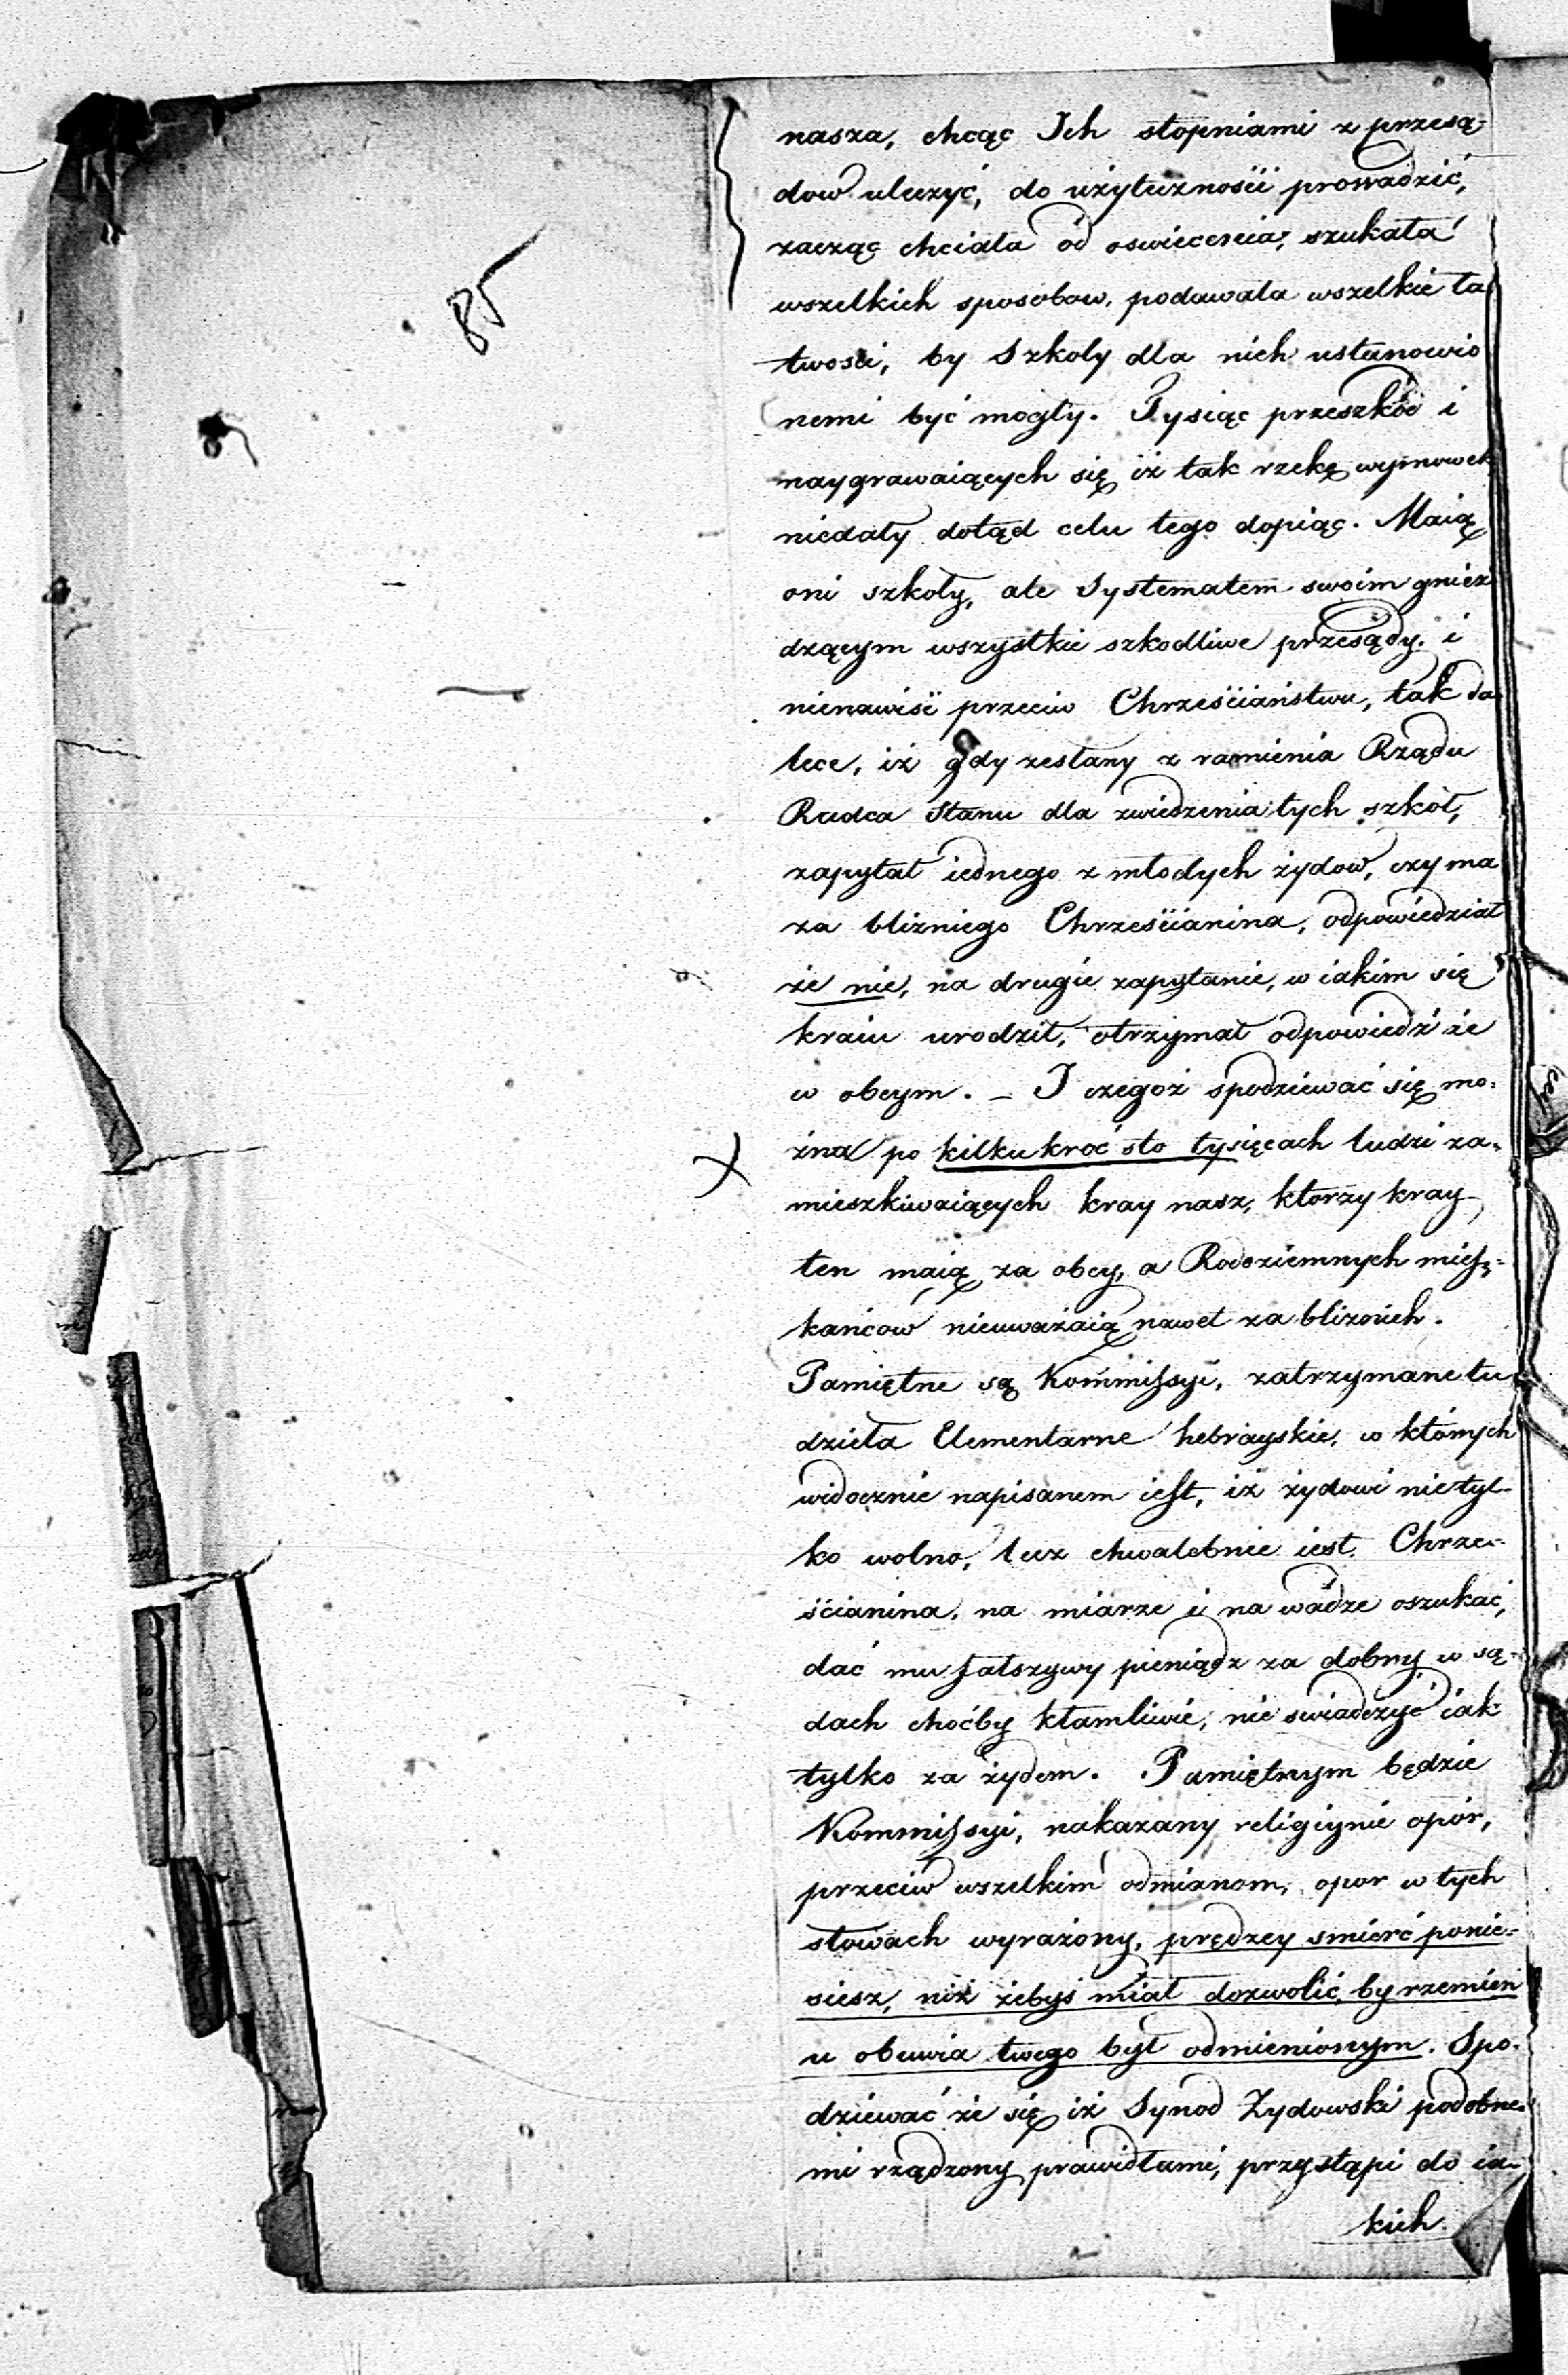 85
nasza, chcąc Ich stopniami z przesą-
dow uleczyć, do użyteczności prowadzić,
zacząć chciała od oswiecenia, szukała
wszelkich sposobow, podawała wszelkie ła
twości, by Szkoły dla nich ustanowio
nemi być mogły. Tysiąc przeszkód i
naygrawaiących się iż tak rzekę wymowek
niedały dotąd celu tego dopiąć. Maią
oni szkoły, ale Systematem swoim gnież
dzącym wszystkie szkodliwe przesądy i
nienawiść przeciw Chrześciaństwu, tak da
lece, iż gdy zesłany z ramienia Rządu
Radca Stanu dla zwiedzenia tych szkół,
zapytał iednego z młodych żydow, czy ma
za bliźniego Chrześcianina, odpowiedział
że nie, na drugie zapytanie, w iakim się
kraiu urodził, otrzymał odpowiedź że
w obcym. – I czegoż spodziewać się mo-
żna po kilkukroć sto tysięcach ludzi za-
mieszkiwaiących kray nasz, ktorzy kray
ten maią za obcy, a Rodziemnych miesz-
kańcow nieuważaią nawet za bliźnich.
Pamiętne są Kommissyi, zatrzymane tu
dzieła Elementarne hebrayskie, w których
widocznie napisanem iest, iż żydowi nietyl-
ko wolno, lecz chwalebnie iest, Chrze-
ścianina, na miarze i na wadze oszukać,
dać mu fałszywy pieniądz za dobry, w są-
dach choćby kłamliwie, nie swiadczyć iak
tylko za żydem. Pamiętnym będzie
Kommissyi, nakazany religiynie opór,
przeciw wszelkim odmianom, opor w tych
słowach wyrażony, prędzey smierć ponie-
siesz, niż żebyś miał dozwolić, by rzemień
u obuwia twego był odmienionym. Spo-
dziewać że się iż Synod Żydowski podobne-
mi rządzony prawidłami, przystąpi do ia-
kich